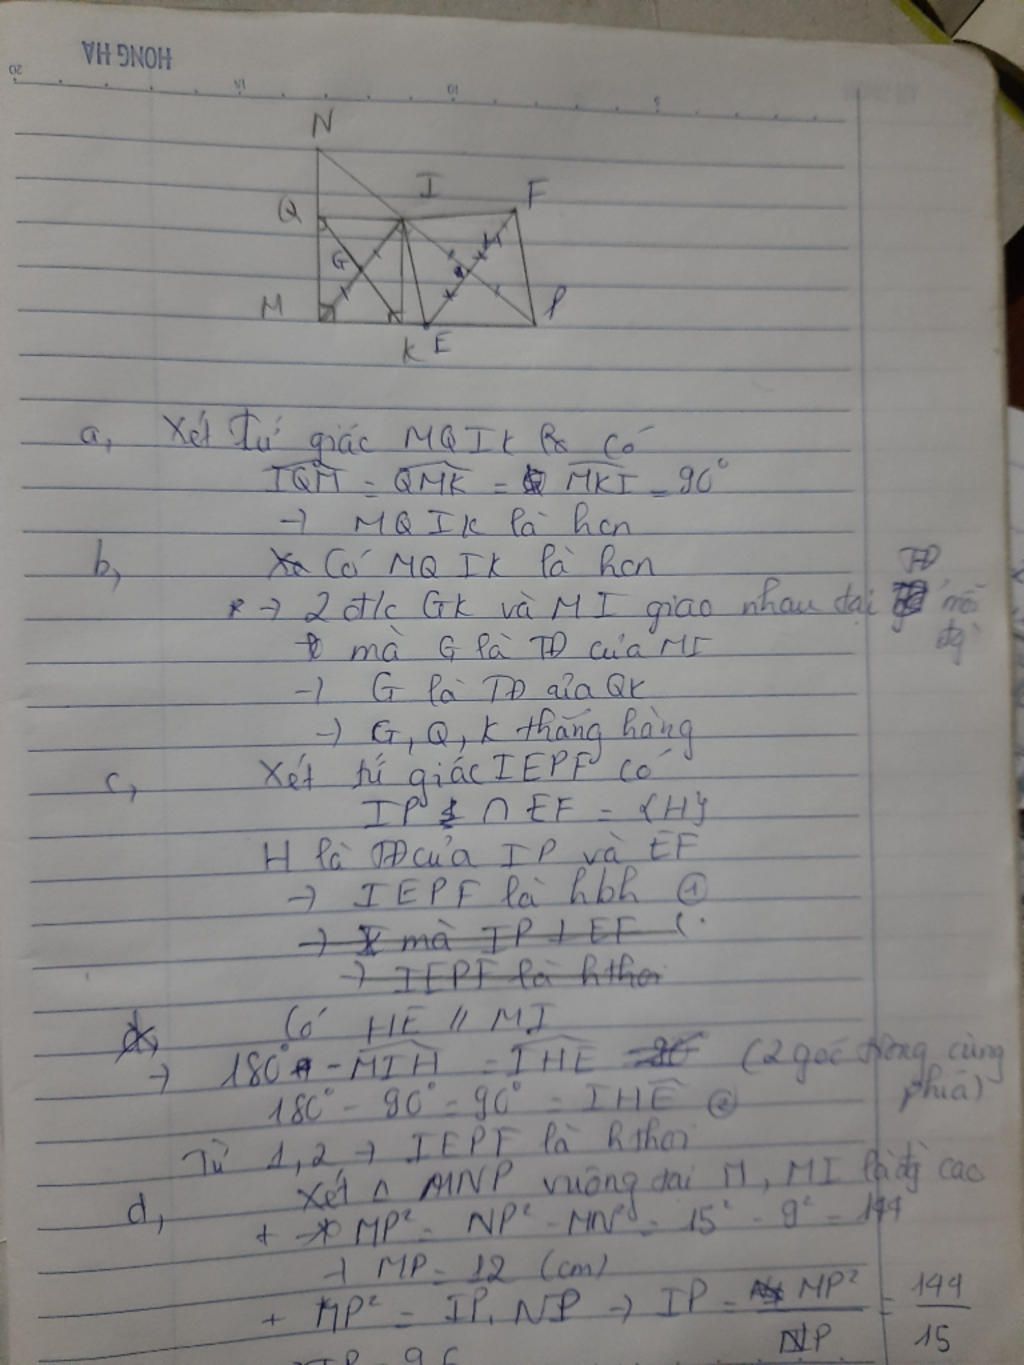 HONG HA
20 15 10 5
N
I F
Q
G H
M P
K E
a, Xét Tứ giác MQIK có
IQM = QMK = MKI = 90°
→ MQIK là hcn
b, Có MQIK là hcn
→ 2 đ/c GK và MI giao nhau tại TĐ mỗi
đg
mà G là TĐ của MI
→ G là TĐ của QK
→ G, Q, K thẳng hàng
c, Xét tứ giác IEPF có
IP ∩ EF = {H}
H là TĐ của IP và EF
→ IEPF là hbh ①
→ mà IP ⊥ EF (
→ IEPF là hthoi
d, Có HE // MI
→ 180° - MIH = IHE = 90 (2 góc trong cùng
phía)
180° - 90° = 90° = IHE ②
Từ 1, 2 → IEPF là hthoi
d, Xét △ MNP vuông tại M, MI là đg cao
+ → MP² = NP² - MN² = 15² - 9² = 144
→ MP = 12 (cm)
+ MP² = IP. NP → IP = MP² / NP = 144 / 15